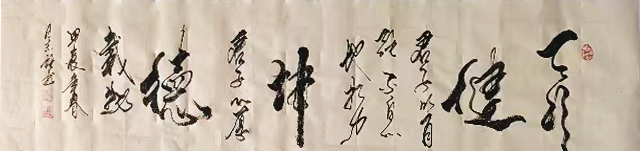 天行
健
君子以自
强不息
地势
坤
君子以厚
德
载物
甲辰年春